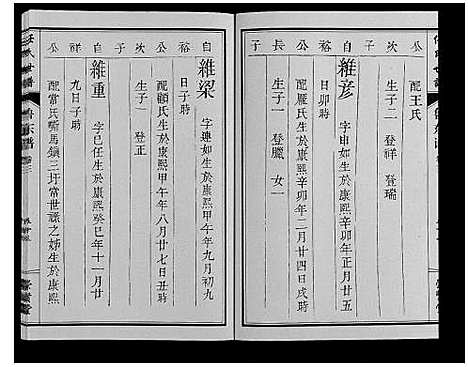 配王氏
生子二 登祥 登瑞
自裕公長子
維彥 字申如生於康熙辛卯年正月廿五
日卯時
配雁氏生於康熙辛卯年二月廿四日戌時
生子一 登臘 女一
自裕公次子
維梁 字連如生於康熙甲午年九月初九
日子時
配顧氏生於康熙甲午年八月廿七日丑時
生子一 登正
自公
維重 字巳任生於康熙癸巳年十一月廿
九日子時
配常氏嘶馬鎮三圩常世祿之姊生於康熙